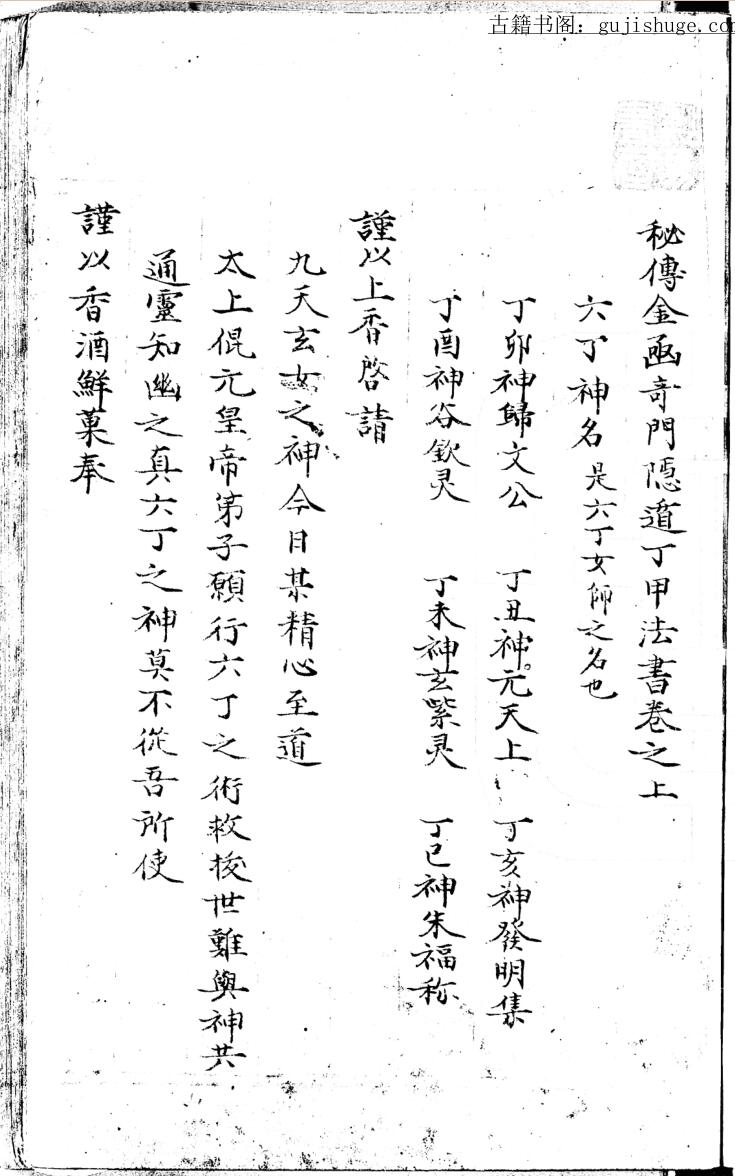 古籍书阁：gujishuge.com
秘傳金函奇門隱遁丁甲法書卷之上
六丁神名 是六丁女師之名也
丁卯神歸文公 丁丑神元天上 丁亥神發明集
丁酉神谷欽灵 丁未神玄紫灵 丁巳神朱福称
謹以上香啓請
九天玄女之神今日某精心至道
太上混亢皇帝第子願行六丁之術救拔世難與神共
通靈知幽之真六丁之神莫不從吾所使
謹以香酒鮮菓奉